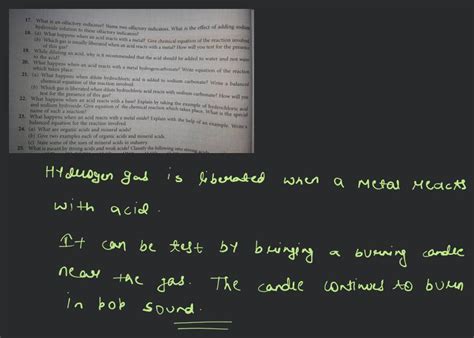 17. What is an olfactory indicator? Name two olfactory indicators. What is the effect of adding sodium
hydroxide solution to these olfactory indicators?
18. (a) What happens when an acid reacts with a metal? Give chemical equation of the reaction involved.
(b) Which gas is usually liberated when an acid reacts with a metal? How will you test for the presence
of this gas?
19. While diluting an acid, why is it recommended that the acid should be added to water and not water
to the acid?
20. What happens when an acid reacts with a metal hydrogencarbonate? Write equation of the reaction
which takes place.
21. (a) What happens when dilute hydrochloric acid is added to sodium carbonate? Write a balanced
chemical equation of the reaction involved.
(b) Which gas is liberated when dilute hydrochloric acid reacts with sodium carbonate? How will you
test for the presence of this gas?
22. What happens when an acid reacts with a base? Explain by taking the example of hydrochloric acid
and sodium hydroxide. Give equation of the chemical reaction which takes place. What is the special
name of such a reaction?
23. What happens when an acid reacts with a metal oxide? Explain with the help of an example. Write a
balanced equation for the reaction involved.
24. (a) What are organic acids and mineral acids?
(b) Give two examples each of organic acids and mineral acids.
(c) State some of the uses of mineral acids in industry.
25. What is meant by strong acids and weak acids? Classify the following into strong
Hydrogen gas is liberated when a metal reacts
with acid.
It can be test by bringing a burning candle
near the gas. The candle continues to burn
in pop sound.